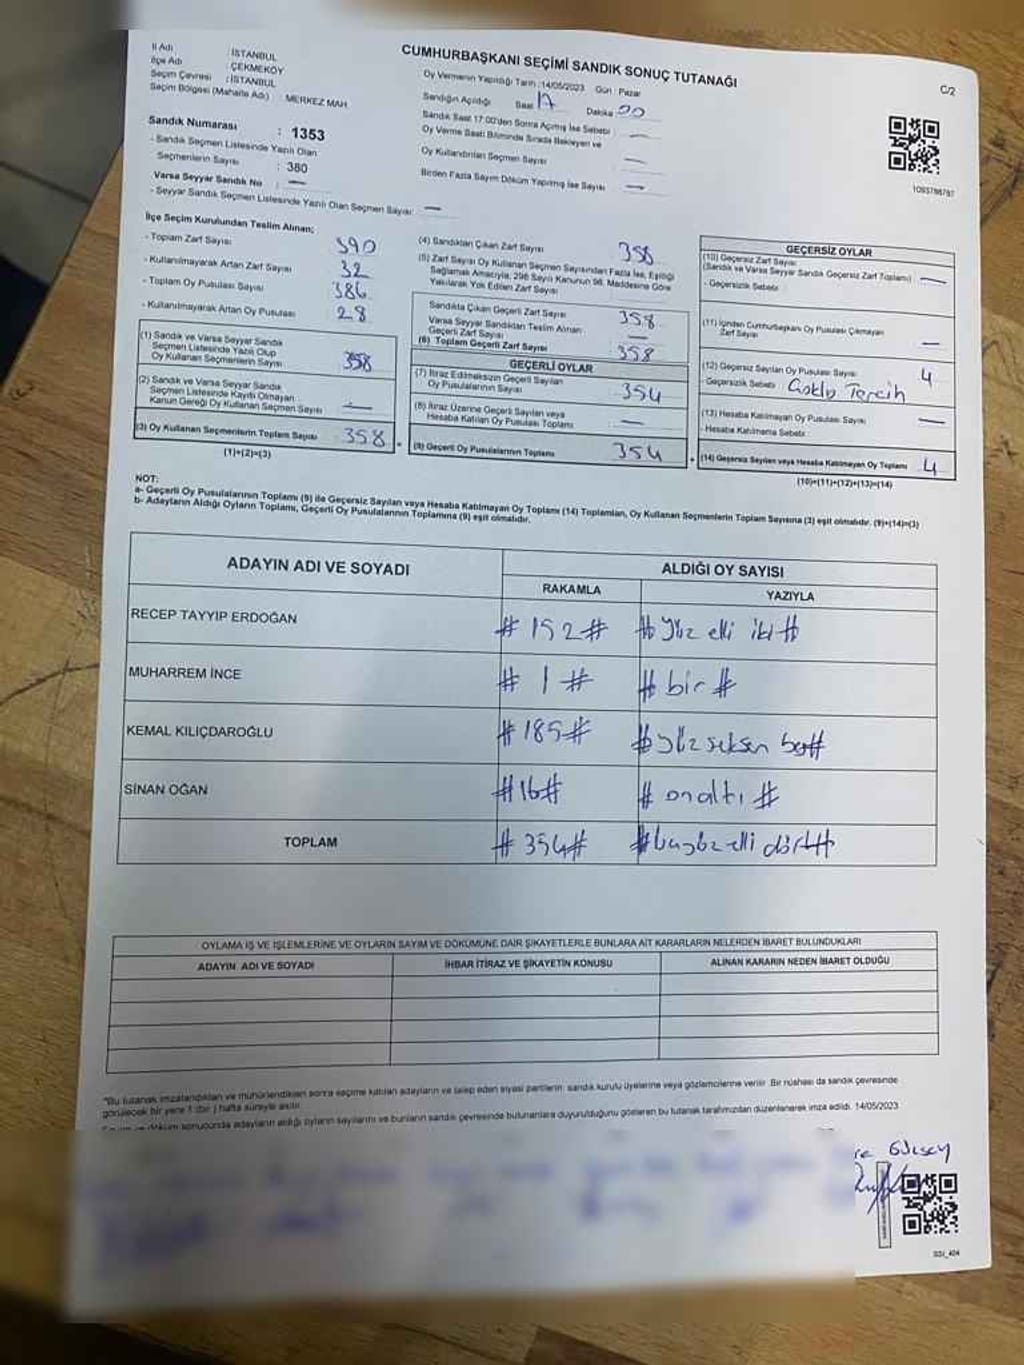 CUMHURBAŞKANI SEÇİMİ SANDIK SONUÇ TUTANAĞI
C/2
İl Adı : İSTANBUL
İlçe Adı : ÇEKMEKÖY
Seçim Çevresi : İSTANBUL
Seçim Bölgesi (Mahalle Adı) : MERKEZ MAH.
Oy Vermenin Yapıldığı Tarih :14/05/2023 Gün : Pazar
Sandığın Açıldığı Saat 17 Dakika 00
Sandık Saat 17:00'den Sonra Açılmış İse Sebebi : —
Oy Verme Saati Bitiminde Sırada Bekleyen ve
Oy Kullandırılan Seçmen Sayısı : —
Birden Fazla Sayım Döküm Yapılmış İse Sayısı : —
Sandık Numarası : 1353
- Sandık Seçmen Listesinde Yazılı Olan
Seçmenlerin Sayısı : 380
Varsa Seyyar Sandık No : —
- Seyyar Sandık Seçmen Listesinde Yazılı Olan Seçmen Sayısı : —
1093788787
İlçe Seçim Kurulundan Teslim Alınan;
- Toplam Zarf Sayısı 390
- Kullanılmayarak Artan Zarf Sayısı 32
- Toplam Oy Pusulası Sayısı 386
- Kullanılmayarak Artan Oy Pusulası 28
(1) Sandık ve Varsa Seyyar Sandık
Seçmen Listesinde Yazılı Olup
Oy Kullanan Seçmenlerin Sayısı 358
(2) Sandık ve Varsa Seyyar Sandık
Seçmen Listesinde Kaydı Olmayan
Kanun Gereği Oy Kullanan Seçmen Sayısı —
(3) Oy Kullanan Seçmenlerin Toplam Sayısı 358
(1)+(2)=(3)
(4) Sandıktan Çıkan Zarf Sayısı 358
(5) Zarf Sayısı Oy Kullanan Seçmen Sayısından Fazla İse, Eşitliği
Sağlamak Amacıyla, 298 Sayılı Kanunun 98. Maddesine Göre
Yakılarak Yok Edilen Zarf Sayısı
Sandıkta Çıkan Geçerli Zarf Sayısı 358
Varsa Seyyar Sandıktan Teslim Alınan
Geçerli Zarf Sayısı —
(6) Toplam Geçerli Zarf Sayısı 358
GEÇERLİ OYLAR
(7) İtiraz Edilmeksizin Geçerli Sayılan
Oy Pusulalarının Sayısı 354
(8) İtiraz Üzerine Geçerli Sayılan veya
Hesaba Katılan Oy Pusulası Toplamı —
(9) Geçerli Oy Pusulalarının Toplamı 354
GEÇERSİZ OYLAR
(10) Geçersiz Zarf Sayısı
(Sandık ve Varsa Seyyar Sandık Geçersiz Zarf Toplamı) —
- Geçersizlik Sebebi :
(11) İçinden Cumhurbaşkanı Oy Pusulası Çıkmayan
Zarf Sayısı —
(12) Geçersiz Sayılan Oy Pusulası Sayısı 4
- Geçersizlik Sebebi : Çoklu Tercih
(13) Hesaba Katılmayan Oy Pusulası Sayısı —
- Hesaba Katılmama Sebebi :
(14) Geçersiz Sayılan veya Hesaba Katılmayan Oy Toplamı 4
(10)+(11)+(12)+(13)=(14)
NOT:
a- Geçerli Oy Pusulalarının Toplamı (9) ile Geçersiz Sayılan veya Hesaba Katılmayan Oy Toplamı (14) Toplamları, Oy Kullanan Seçmenlerin Toplam Sayısına (3) eşit olmalıdır. (9)+(14)=(3)
b- Adayların Aldığı Oyların Toplamı, Geçerli Oy Pusulalarının Toplamına (9) eşit olmalıdır.
ADAYIN ADI VE SOYADI
ALDIĞI OY SAYISI
RAKAMLA YAZIYLA
RECEP TAYYIP ERDOĞAN # 152 # # Yüz elli iki #
MUHARREM İNCE # 1 # # bir #
KEMAL KILIÇDAROĞLU # 185 # # Yüz seksen beş #
SİNAN OĞAN # 16 # # onaltı #
TOPLAM # 354 # # üçyüz elli dört #
OYLAMA İŞ VE İŞLEMLERİNE VE OYLARIN SAYIM VE DÖKÜMÜNE DAİR ŞİKAYETLERLE BUNLARA AİT KARARLARIN NELERDEN İBARET BULUNDUKLARI
ADAYIN ADI VE SOYADI İHBAR İTİRAZ VE ŞİKAYETİN KONUSU ALINAN KARARIN NEDEN İBARET OLDUĞU
"Bu tutanak imzalandıktan ve mühürlendikten sonra seçime katılan adayların ve talep eden siyasi partilerin; sandık kurulu üyelerine veya gözlemcilerine verilir. Bir nüshası da sandık çevresinde
görülecek bir yere 1 (bir) hafta süreyle asılır.
döküm sonucunda adayların aldığı oyların sayılarını ve bunların sandık çevresinde bulunanlara duyurulduğunu gösteren bu tutanak tarafımızdan düzenlenerek imza edildi. 14/05/2023